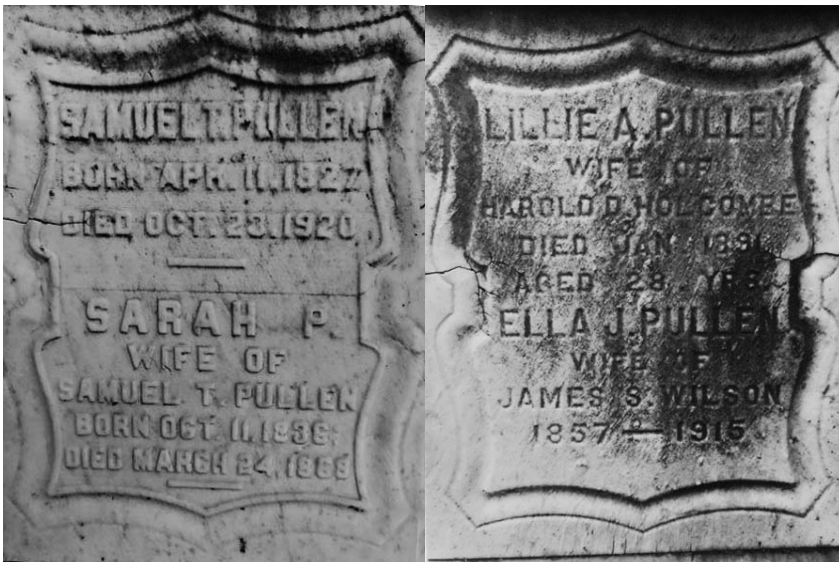 SAMUEL T. PULLEN
BORN APR. 11, 1827
DIED OCT. 23, 1920
SARAH P.
WIFE OF
SAMUEL T. PULLEN
BORN OCT. 11, 1836;
DIED MARCH 24, 1869
LILLIE A. PULLEN
WIFE OF
HAROLD D. HOLCOMBE
DIED JAN 1891
AGED 28 YRS.
ELLA J. PULLEN
WIFE OF
JAMES S. WILSON
1857 — 1915